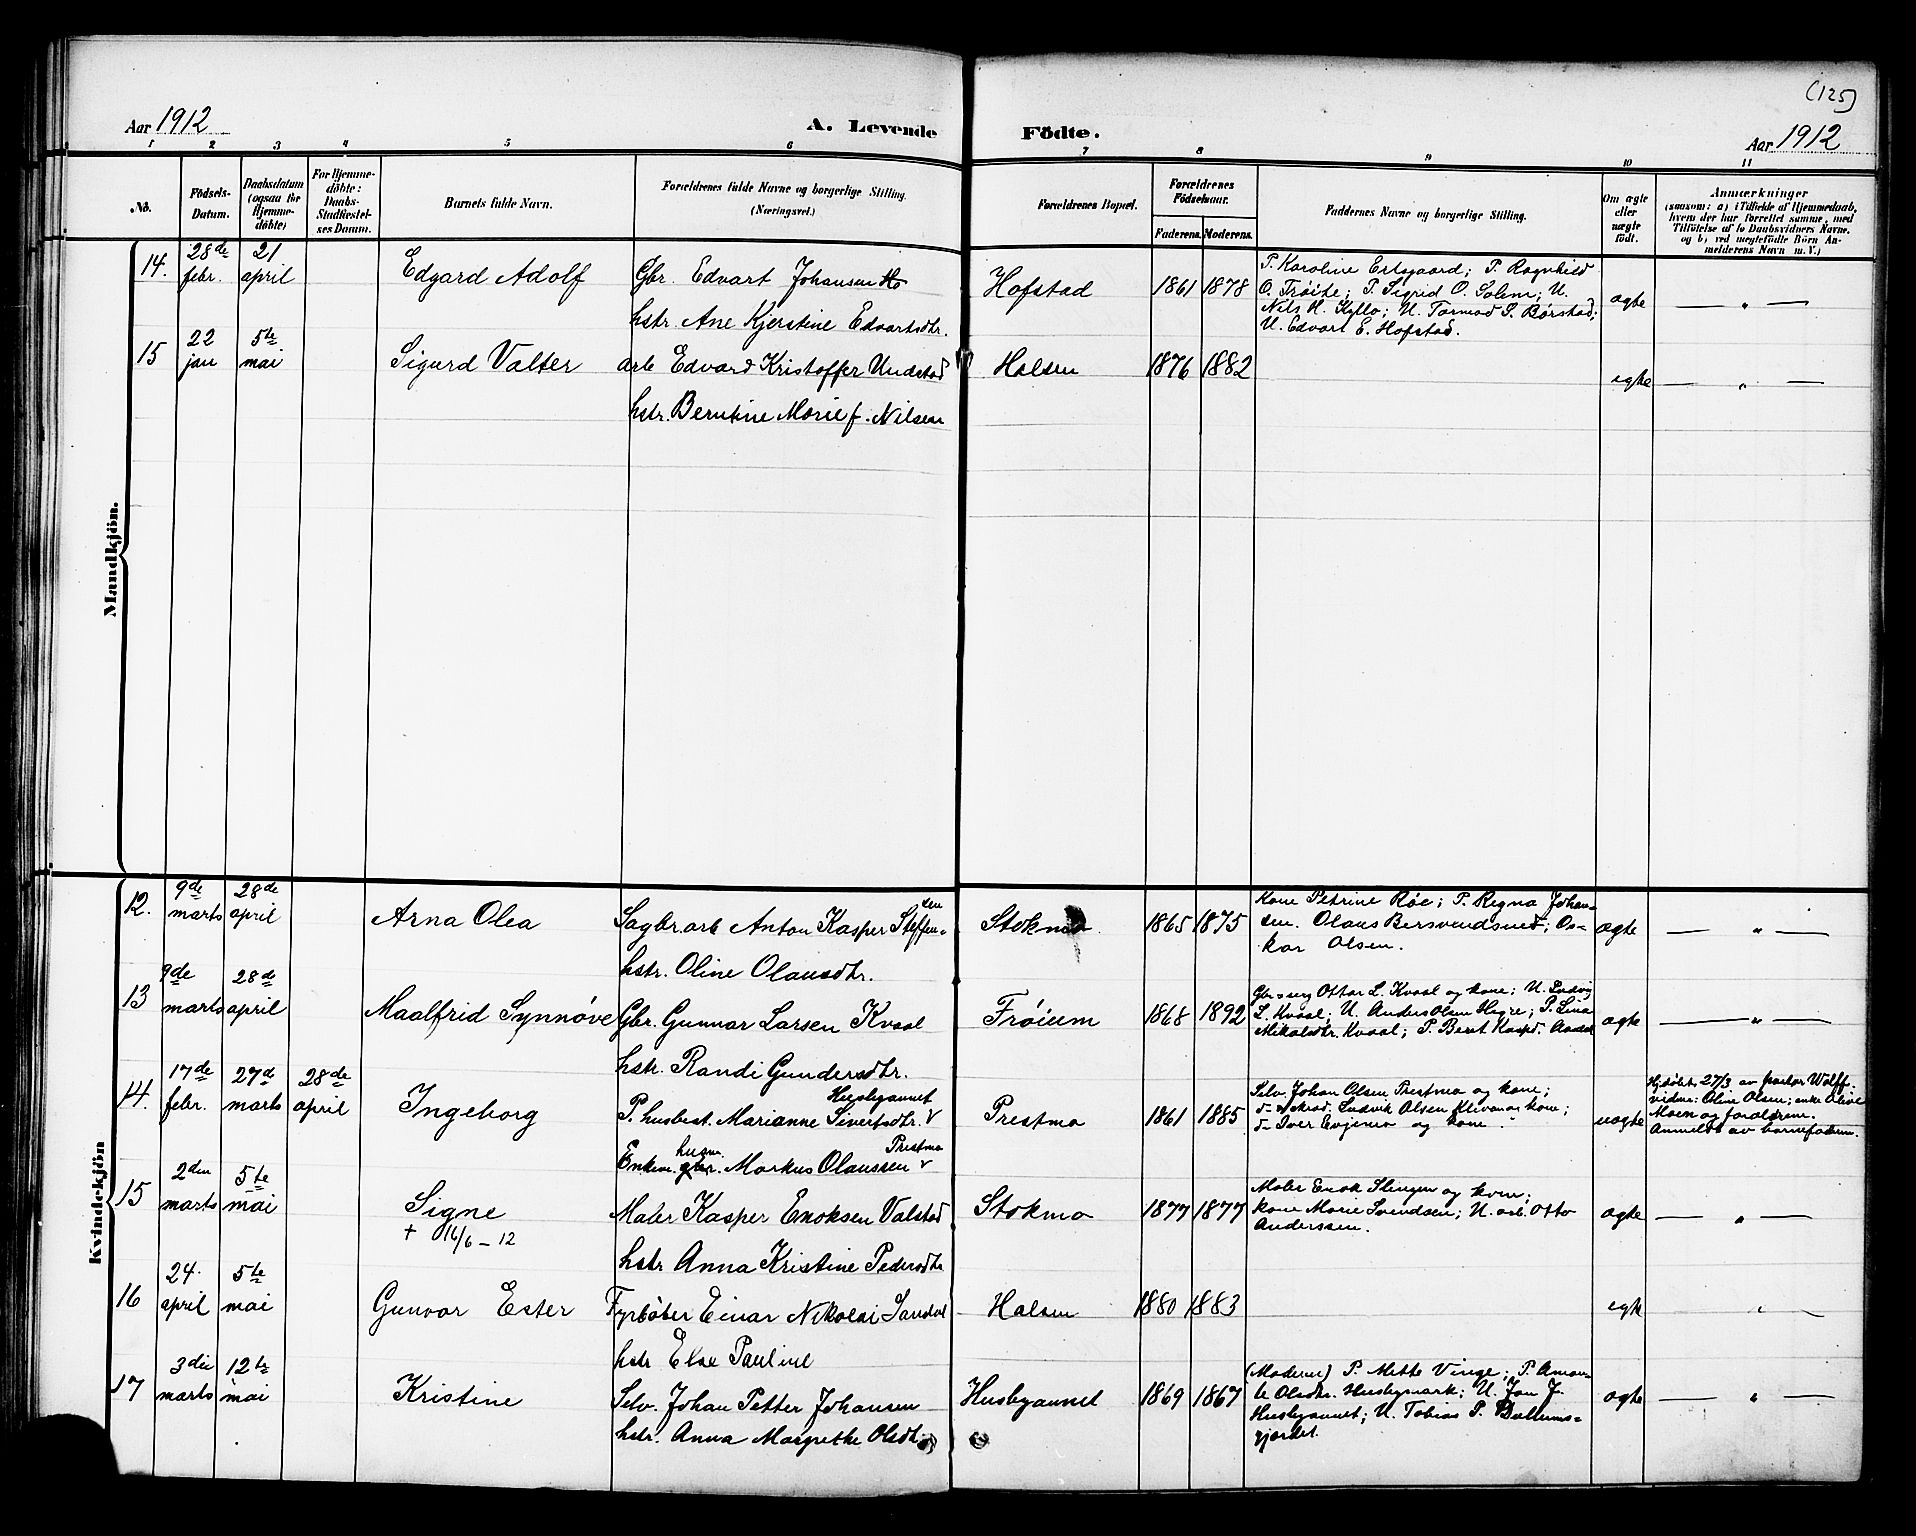 (125)
Aar 1912
A. Levende
Födte.
Aar 1912
1 2 3 4 5 6 7 8 9 10 11
No.
Födsels-
Datum.
Daabsdatum
(ogsaa for
Hjemme-
döbte)
For Hjemme-
döbte:
Daabs-
Stadfæstel-
ses Datum.
Barnets fulde Navn.
Forældrenes fulde Navne og borgerlige Stilling.
(Næringsvei.)
Forældrenes Bopæl.
Forældrenes
Födselsaar.
Faderens. Moderens.
Faddernes Navne og borgerlige Stilling.
Om ægte
eller
uægte
födt.
Anmærkninger
(saasom: a) i Tilfælde af Hjemmedaab,
hvem der har forrettet samme, med
Tilföielse af to Daabsvidners Navne.
og b) ved uægtefödte Börn An-
melderens Navn m. V.)
Mandkjön.
14.
28de
febr.
21
april
Edgard Adolf
Gbr. Edvart Johansen Ho
hstr. Ane Kjerstine Edvartsdtr.
Hofstad
1861 1878
P. Karoline Ertsgaard; P. Ragnhild
O. Trøite; P. Sigrid O. Solem; U.
Nils H. Kyllo; U. Tormod P. Børstad;
U. Edvart E. Hofstad.
ægte
— " —
15
22
jan
5te
mai
Sigurd Valter
arb Edvard Kristoffer Undstad
hstr. Berntine Marie f. Nilsen
Halsen
1876 1882
egte
— " —
Kvindekjön
12.
9de
marts
28de
april
Arna Olea
Sagbr.arb Anton Kasper Steffen-
sen
hstr. Oline Olausdtr.
Stokmo
1865 1875
Kone Petrine Røe; P. Regna Johan-
sen. Olaus Bersvendsned; Os-
kar Olsen.
ægte
— " —
13
9de
marts
28de
april
Maalfrid Synnøve
Gbr. Gunnar Larsen Kvaal
hstr. Randi Gundersdtr.
Frøium
1868 1892
Ottar L. Kvaal og kone; U. Ludvig
L. Kvaal; U. Anders Olsen Hegre; P. Lina
Mikalsdtr. Kvaal; P. Berit
ægte
— " —
14.
17de
febr.
27d
marts
28de
april
Ingeborg
Husbyaunet
P. husbest. Marianne Sivertsdtr. V
husm. Prestmo
Enkem. gbr. Markus Olaussen V
Prestmo
1861 1885
Selv. Johan Olsen Prestmo og kone;
Ludvik Olsen Klevan og kone;
d- Iver Evjemo og kone.
uægte
Hjdøbt 27/3 av pastor Wolff.
vidner: Oline Olsen; enke Olive
Moen og forældrene.
Anmeldt av barnefaderen.
15
2den
marts
5te
mai
Signe
+ 16/6 – 12
Maler Kasper Enoksen Valstad
hstr Anna Kristine Pedersdtr
Stokmo
1877 1877
Maler Enok Slungen og kone;
kone Marie Svendsen; U. arb. Otto
Anderssen.
ægte
— " —
16
24.
april
5te
mai
Gunvor Ester
Fyrbøter Einar Nikolai Sandvol
hstr Else Pauline
Halsen
1880 1883
egte
— " —
17
3die
marts
12te
mai
Kristine
Selv. Johan Petter Johansen
hstr. Anna Margrethe Olsdtr
Husbyaunet
1869 1867
(Moderne) P. Mette Vinge; P. Aman-
Olsdtr. Husbymark; U. Jon J.
Husbyaunet; U. Tobias P. Ballums-
gjerdet.
ægte
— " —